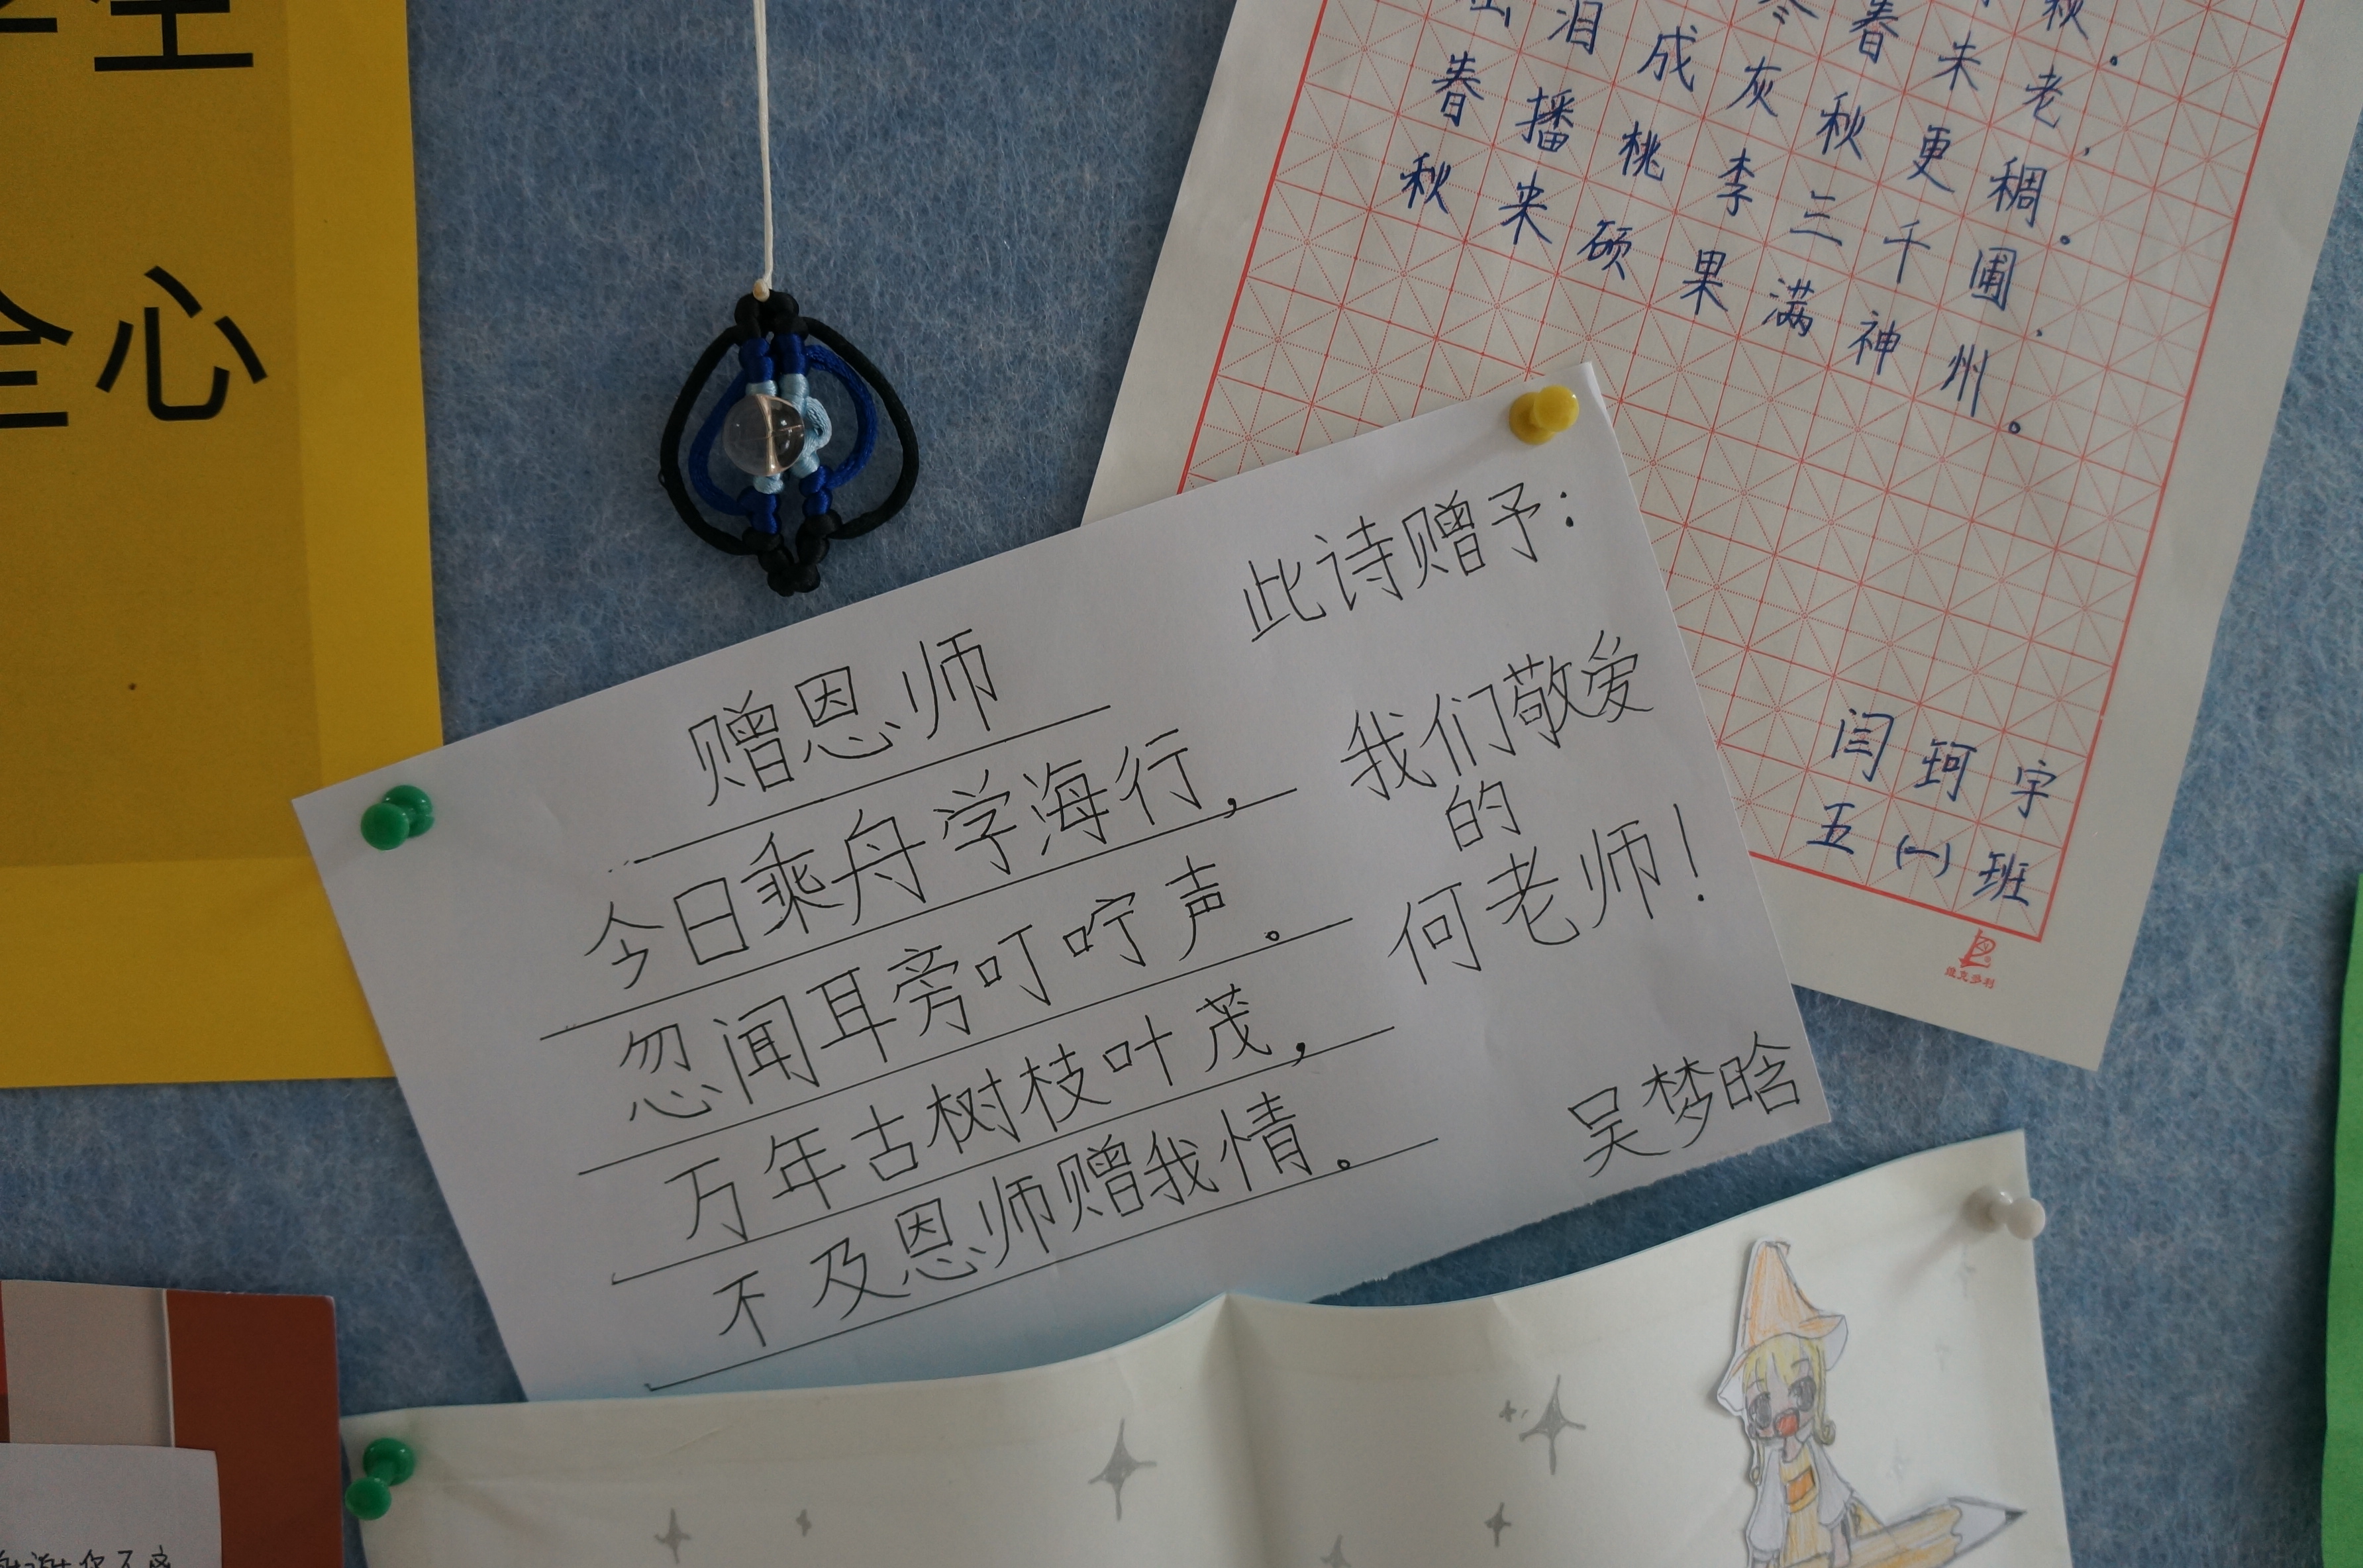 全心
秋。
泪成灰春未老，
春播桃李三千圃，
秋来硕果满神州。
闫珂宇
五（一）班
赠恩师
今日乘舟学海行，
忽闻耳旁叮咛声。
万年古树枝叶茂，
不及恩师赠我情。
此诗赠予：
我们敬爱
的
何老师！
吴梦晗